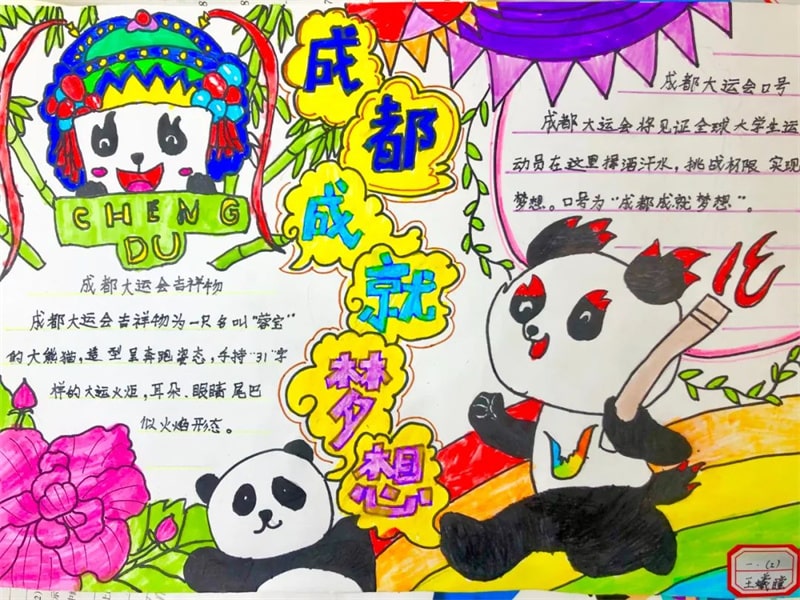 CHENG
DU
成都大运会吉祥物
成都大运会吉祥物为一只名叫“蓉宝”
的大熊猫,造型呈奔跑姿态,手持“31”字
样的大运火炬,耳朵、眼睛尾巴
似火焰形态。
成
都
成
就
梦
想
成都大运会口号
成都大运会将见证全球大学生运
动员在这里挥洒汗水,挑战极限 实现
梦想。口号为“成都成就梦想”。
一.(2)
王曦瞳